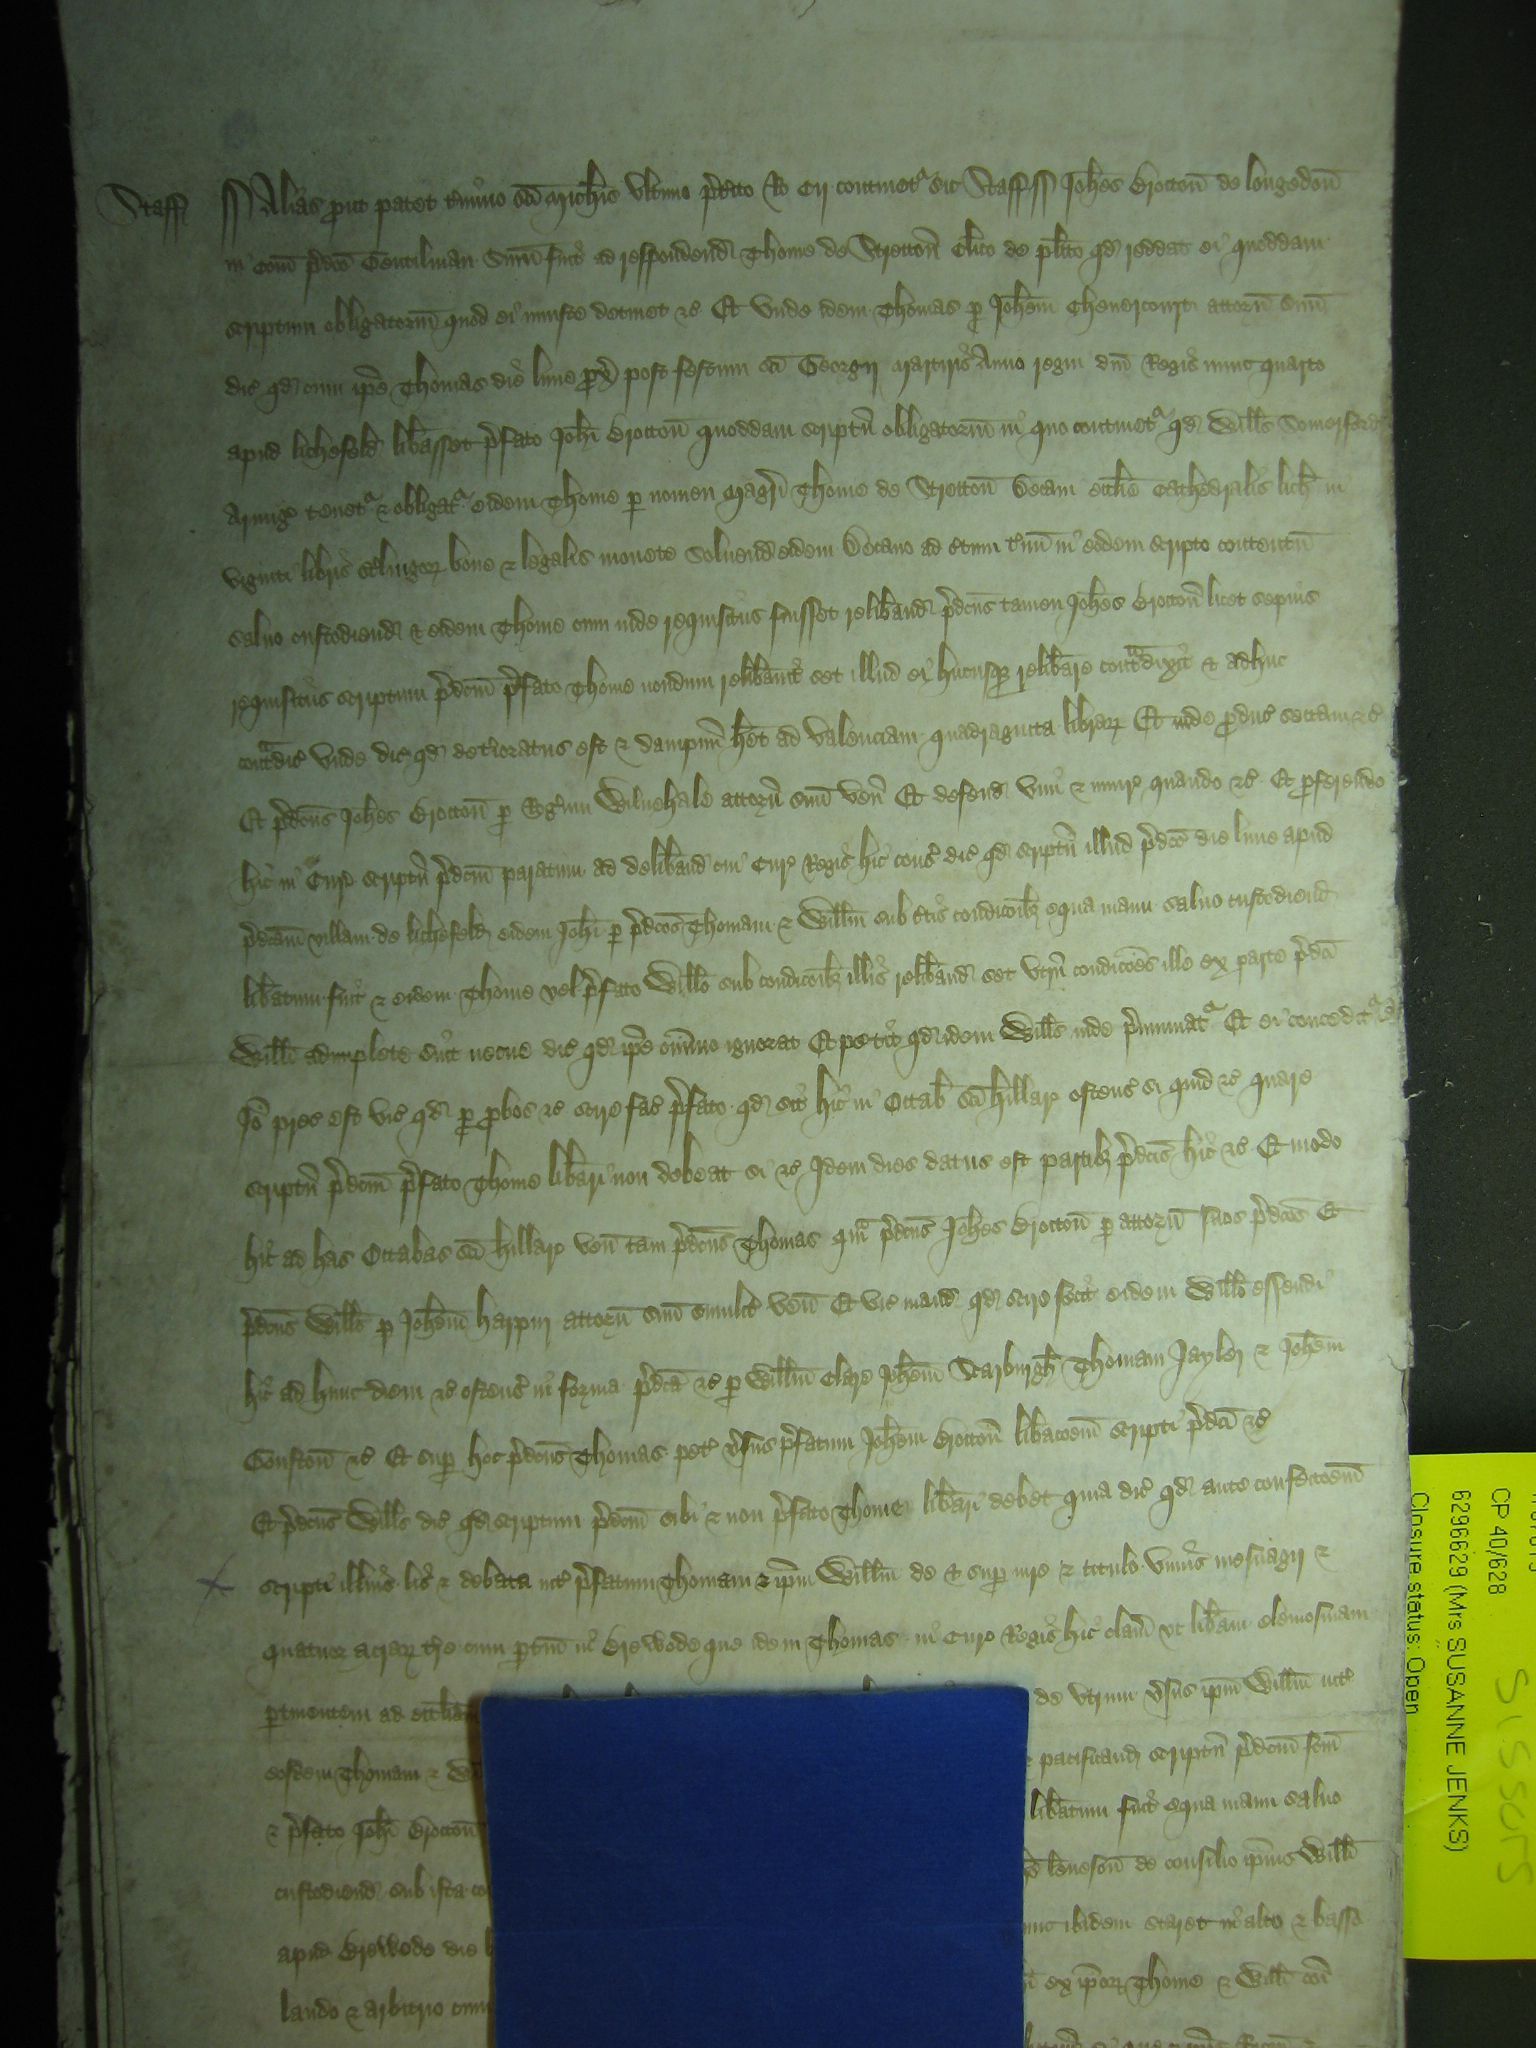 Staff ss Alias prout patet t'mino sci Mich'is ultimo p'dito Ro cij continet' sic Staff ss Joh'es Brocton de longedon
in com p'dco Gentilman Sum fuit ad respondend Thome de Stretton Clico de plito qd reddat ei quoddam
scriptum obligatorium quod ei iniuste detinet &c Et unde idem Thomas p Johem attorn suum
dic qd cum ipe Thomas die lune prox post festum sci Georgii Martiris Anno regni dni Regis nunc quarto
apud lichefeld lib'asset p'fato Johi Brocton quoddam scriptu obligatorium in quo continet' qd Will's Somerford
Armig' tenet' & obligat' eidem Thome p nomen Magri Thome de Stretton Decani ecclie Cathedralis lich in
viginti libris st'lingor bone & legalis monete solvend eidem Decano ad c'tum t'mu in eodem scripto contentu
salvo custodiend & eidem Thome cum inde requisitus fuisset relib'and p'dcus tamen Joh'es Brocton licet sepius
requisitus scriptum p'dcm p'fato Thome nondum relib'avit set illud ei hucusq relib'are cont'dixit & adhuc
cont'dic unde dic qd det'ioratus est & dampnu h'et ad valenciam quadraginta librar Et inde produc sectam &c
Et p'dcus Joh'es Brocton p Rog'um Wilnehale attorn suu ven Et defend vim & iniur quando &c Et proferendo
hic in Cur scriptu p'dcm paratum ad delib'and cui Cur Regis hic cons' dic qd scriptu illud p'dco die lune apud
p'dcam villam de lichefeld eidem Johi p p'dcos Thomam & Will'm sub c'tis condicoib equa manu salvo custodiend
lib'atum fuit & eidem Thome vel p'fato Will'o sub condicoib illis relib'and set utru condicoes ille ex parte p'dci
Willi adimplete sint necne dic qd ipe omnino ignorat Et petit qd idem Will's inde p'muniat' Et ei conceditur
Io prec est vic qd p probos &c scire fac p'fato qd sit hic in Octab sci hillar ostens si quid &c quare
scriptu p'dcm p'fato Thome lib'ari non debeat si &c Idem dies datus est partib p'dcis hic &c Et modo
hic ad has Octabas sci hillar ven tam p'dcus Thomas qm p'dcus Joh'es Brocton p attorn suos p'dcos Et
p'dcus Will's p Joh'em harpur attorn suu similit' ven Et vic mand qd scire fecit eidem Will'o essendi
hic ad hunc diem &c ostens in forma p'dca &c p Will'm Clare Joh'em Starburgh Thomam Jayler & Joh'em
Gonston &c Et sup hoc p'dcus Thomas pet v'sus p'fatum Joh'em Brocton lib'acoem scripti p'dci &c
Et p'dcus Will's dic qd scriptum p'dcm sibi & non p'fato Thome lib'ari debet quia dic qd ante confeccoem
scripti illius lis & debata int' p'fatum Thomam & ipm Will'm de & sup iure & titulo unius mesuagii &
quatuor acrar t're cum p'tin in Brewode que idem Thomas in Cur Regis hic clam ut lib'am elemosinam
p'tinentem ad eccliam de utrum v'sus ipm Will'm int'
eosdem Thomam & pacificand scriptu p'dcm scdm
& p'fato Johi Brocton lib'atum fuit equa manu salvo
custodiend sub ista leueson de consilio ipius Willi
apud Brewode die ibidem staret in alto & basso
laudo & arbitrio ex ipor Thome & Willi coi
CP 40/628
6296629 (Mrs SUSANNE JENKS)
Closure status: Open
SISSORS